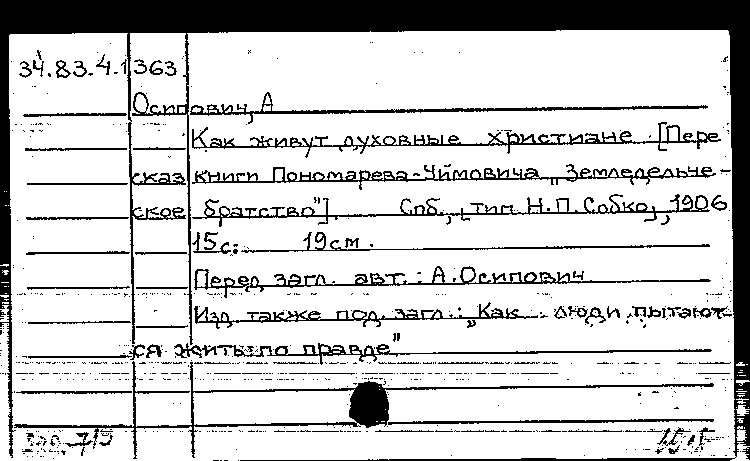 34.83.4.1363.
Осипович, А
Как живут духовные христиане. [Пере
сказ книги Пономарева-Чимовича „Земледельче-
ское братство"]. Спб., [тип. Н.П.Собко], 1906
15с. 19см.
Перед загл. авт.: А.Осипович
Изд. также под загл.: „Как люди пытают-
ся жить по правде"